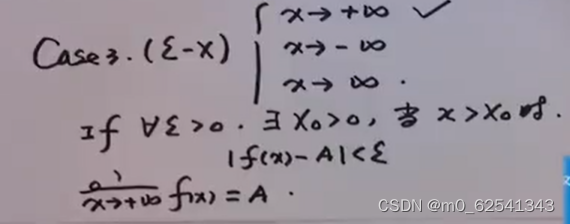 Case 3. (ε-X) { x→+∞ ✓
x→-∞
x→∞.
If ∀ε>0. ∃X₀>0, 当 x>X₀时.
|f(x)-A|<ε
x→+∞ f(x)=A.
CSDN @m0_62541343